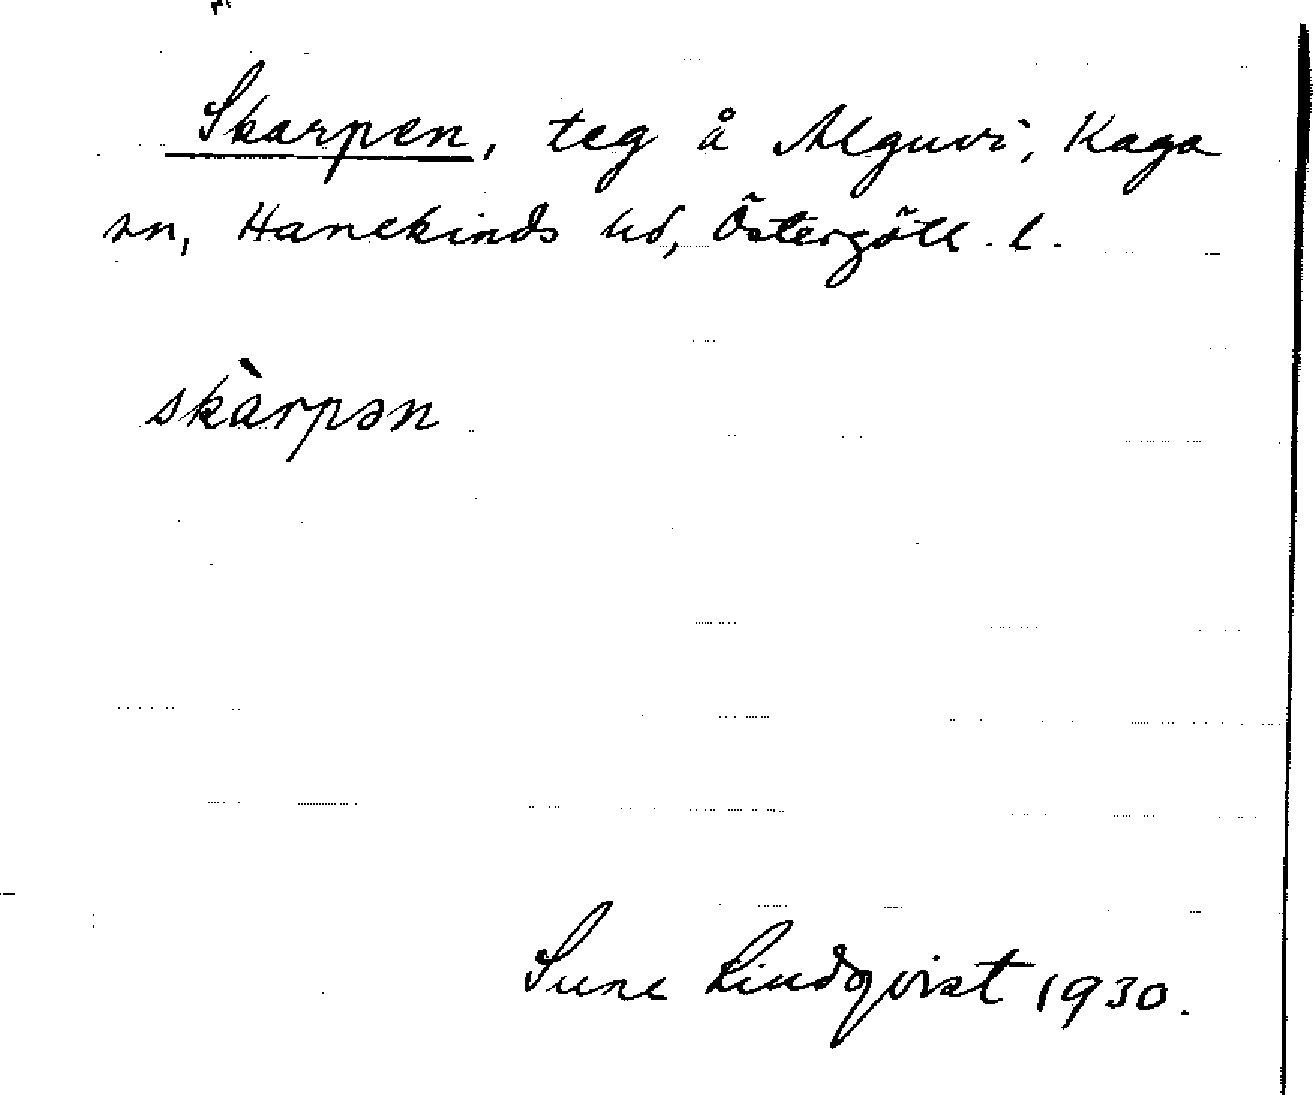 Skarpen, teg å Alguvi, Kaga
sn, Hanekinds hd, Östergötl. l.
skàrpən
Sune Lindqvist 1930.